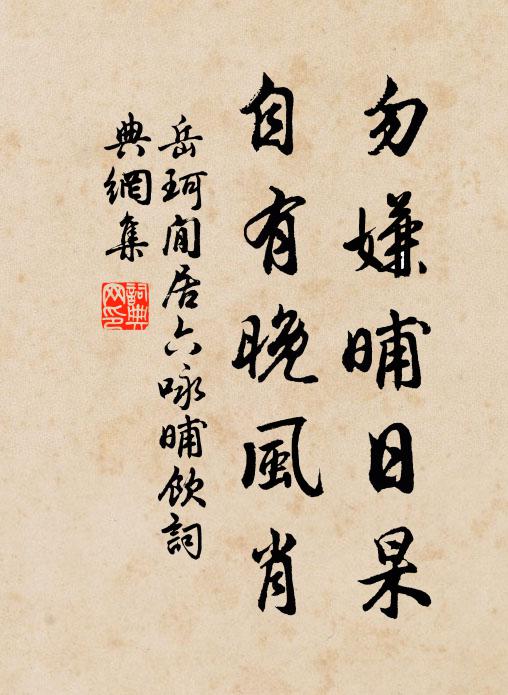 勿嫌晡日杲
自有晚風肖
岳珂閒居六咏晡飲詞
典網集
詞典網印